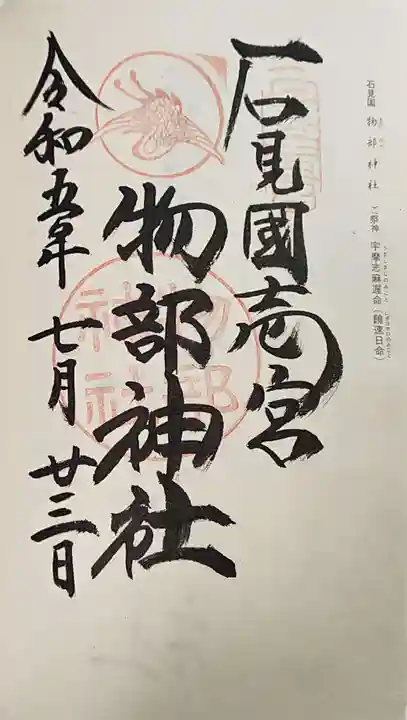 石見国 物部神社 ご祭神 宇摩志麻遅命(饒速日命)
石見國壱宮
物部神社
令和五年 七月 廿三日
物部
神社